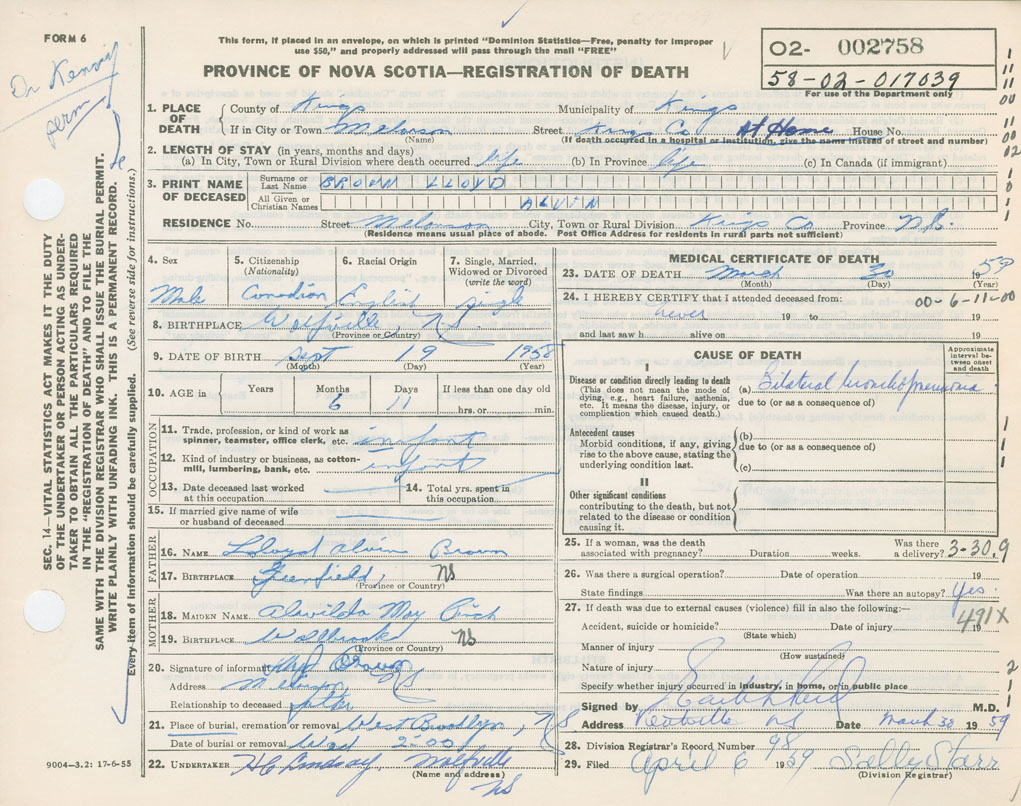 FORM 6
This form, if placed in an envelope, on which is printed "Dominion Statistics—Free, penalty for improper
use $50," and properly addressed will pass through the mail "FREE"
PROVINCE OF NOVA SCOTIA—REGISTRATION OF DEATH
02- 002758
58-02-017039
For use of the Department only
perm
SEC. 14—VITAL STATISTICS ACT MAKES IT THE DUTY
OF THE UNDERTAKER OR PERSON ACTING AS UNDER-
TAKER TO OBTAIN ALL THE PARTICULARS REQUIRED
IN THE "REGISTRATION OF DEATH" AND TO FILE THE
SAME WITH THE DIVISION REGISTRAR WHO SHALL ISSUE THE BURIAL PERMIT.
WRITE PLAINLY WITH UNFADING INK. THIS IS A PERMANENT RECORD.
Every item of Information should be carefully supplied. (See reverse side for instructions.)
1. PLACE OF DEATH
County of Kings Municipality of Kings
If in City or Town Melanson Street Kings Co At Home House No.
(Name) (If death occurred in a hospital or institution, give the name instead of street and number)
2. LENGTH OF STAY (in years, months and days)
(a) In City, Town or Rural Division where death occurred life (b) In Province life (c) In Canada (if immigrant)
3. PRINT NAME OF DECEASED
Surname or Last Name BROWN LLOYD
All Given or Christian Names ALVIN
RESIDENCE No. Street Melanson City, Town or Rural Division Kings Co Province N.S.
(Residence means usual place of abode. Post Office Address for residents in rural parts not sufficient)
4. Sex Male
5. Citizenship (Nationality) Canadian
6. Racial Origin English
7. Single, Married, Widowed or Divorced (write the word) single
8. BIRTHPLACE Wolfville, N.S.
(Province or Country)
9. DATE OF BIRTH Sept 19 1958
(Month) (Day) (Year)
10. AGE in Years Months 6 Days 11 If less than one day old hrs. or min.
OCCUPATION
11. Trade, profession, or kind of work as
spinner, teamster, office clerk, etc. infant
12. Kind of industry or business, as cotton-
mill, lumbering, bank, etc. infant
13. Date deceased last worked
at this occupation
14. Total yrs. spent in
this occupation
15. If married give name of wife
or husband of deceased
FATHER
16. NAME Lloyd Alvin Brown
17. BIRTHPLACE Greenfield, NS
(Province or Country)
MOTHER
18. MAIDEN NAME Alwilda May Rich
19. BIRTHPLACE Wallbrook NS
(Province or Country)
20. Signature of informant Lloyd Brown
Address Melanson
Relationship to deceased father
21. Place of burial, cremation or removal West Brooklyn, NS
Date of burial or removal Wed 2:00
22. UNDERTAKER H C Lindsay, Wolfville
(Name and address) NS
9004—3.2: 17-6-55
MEDICAL CERTIFICATE OF DEATH
23. DATE OF DEATH March 30 1959
(Month) (Day) (Year)
24. I HEREBY CERTIFY that I attended deceased from: 00-6-11-00
never 19 to 19
and last saw h alive on 19
CAUSE OF DEATH
Approximate interval between onset and death
I
Disease or condition directly leading to death
(This does not mean the mode of
dying, e.g., heart failure, asthenia,
etc. It means the disease, injury, or
complication which caused death.)
(a) Bilateral bronchopneumonia
due to (or as a consequence of)
Antecedent causes
Morbid conditions, if any, giving
rise to the above cause, stating the
underlying condition last.
(b)
due to (or as a consequence of)
(c)
II
Other significant conditions
contributing to the death, but not
related to the disease or condition
causing it.
25. If a woman, was the death Was there
associated with pregnancy? Duration weeks. a delivery? 3-30.9
26. Was there a surgical operation? Date of operation 19
State findings Was there an autopsy? Yes.
27. If death was due to external causes (violence) fill in also the following:—
Accident, suicide or homicide? Date of injury 19
(State which) 491X
Manner of injury
(How sustained)
Nature of injury
Specify whether injury occurred in industry, in home, or in public place
Signed by M.D.
Address Kentville NS Date March 30 1959
28. Division Registrar's Record Number 98
29. Filed April 6 1959 Sally Starr
(Division Registrar)